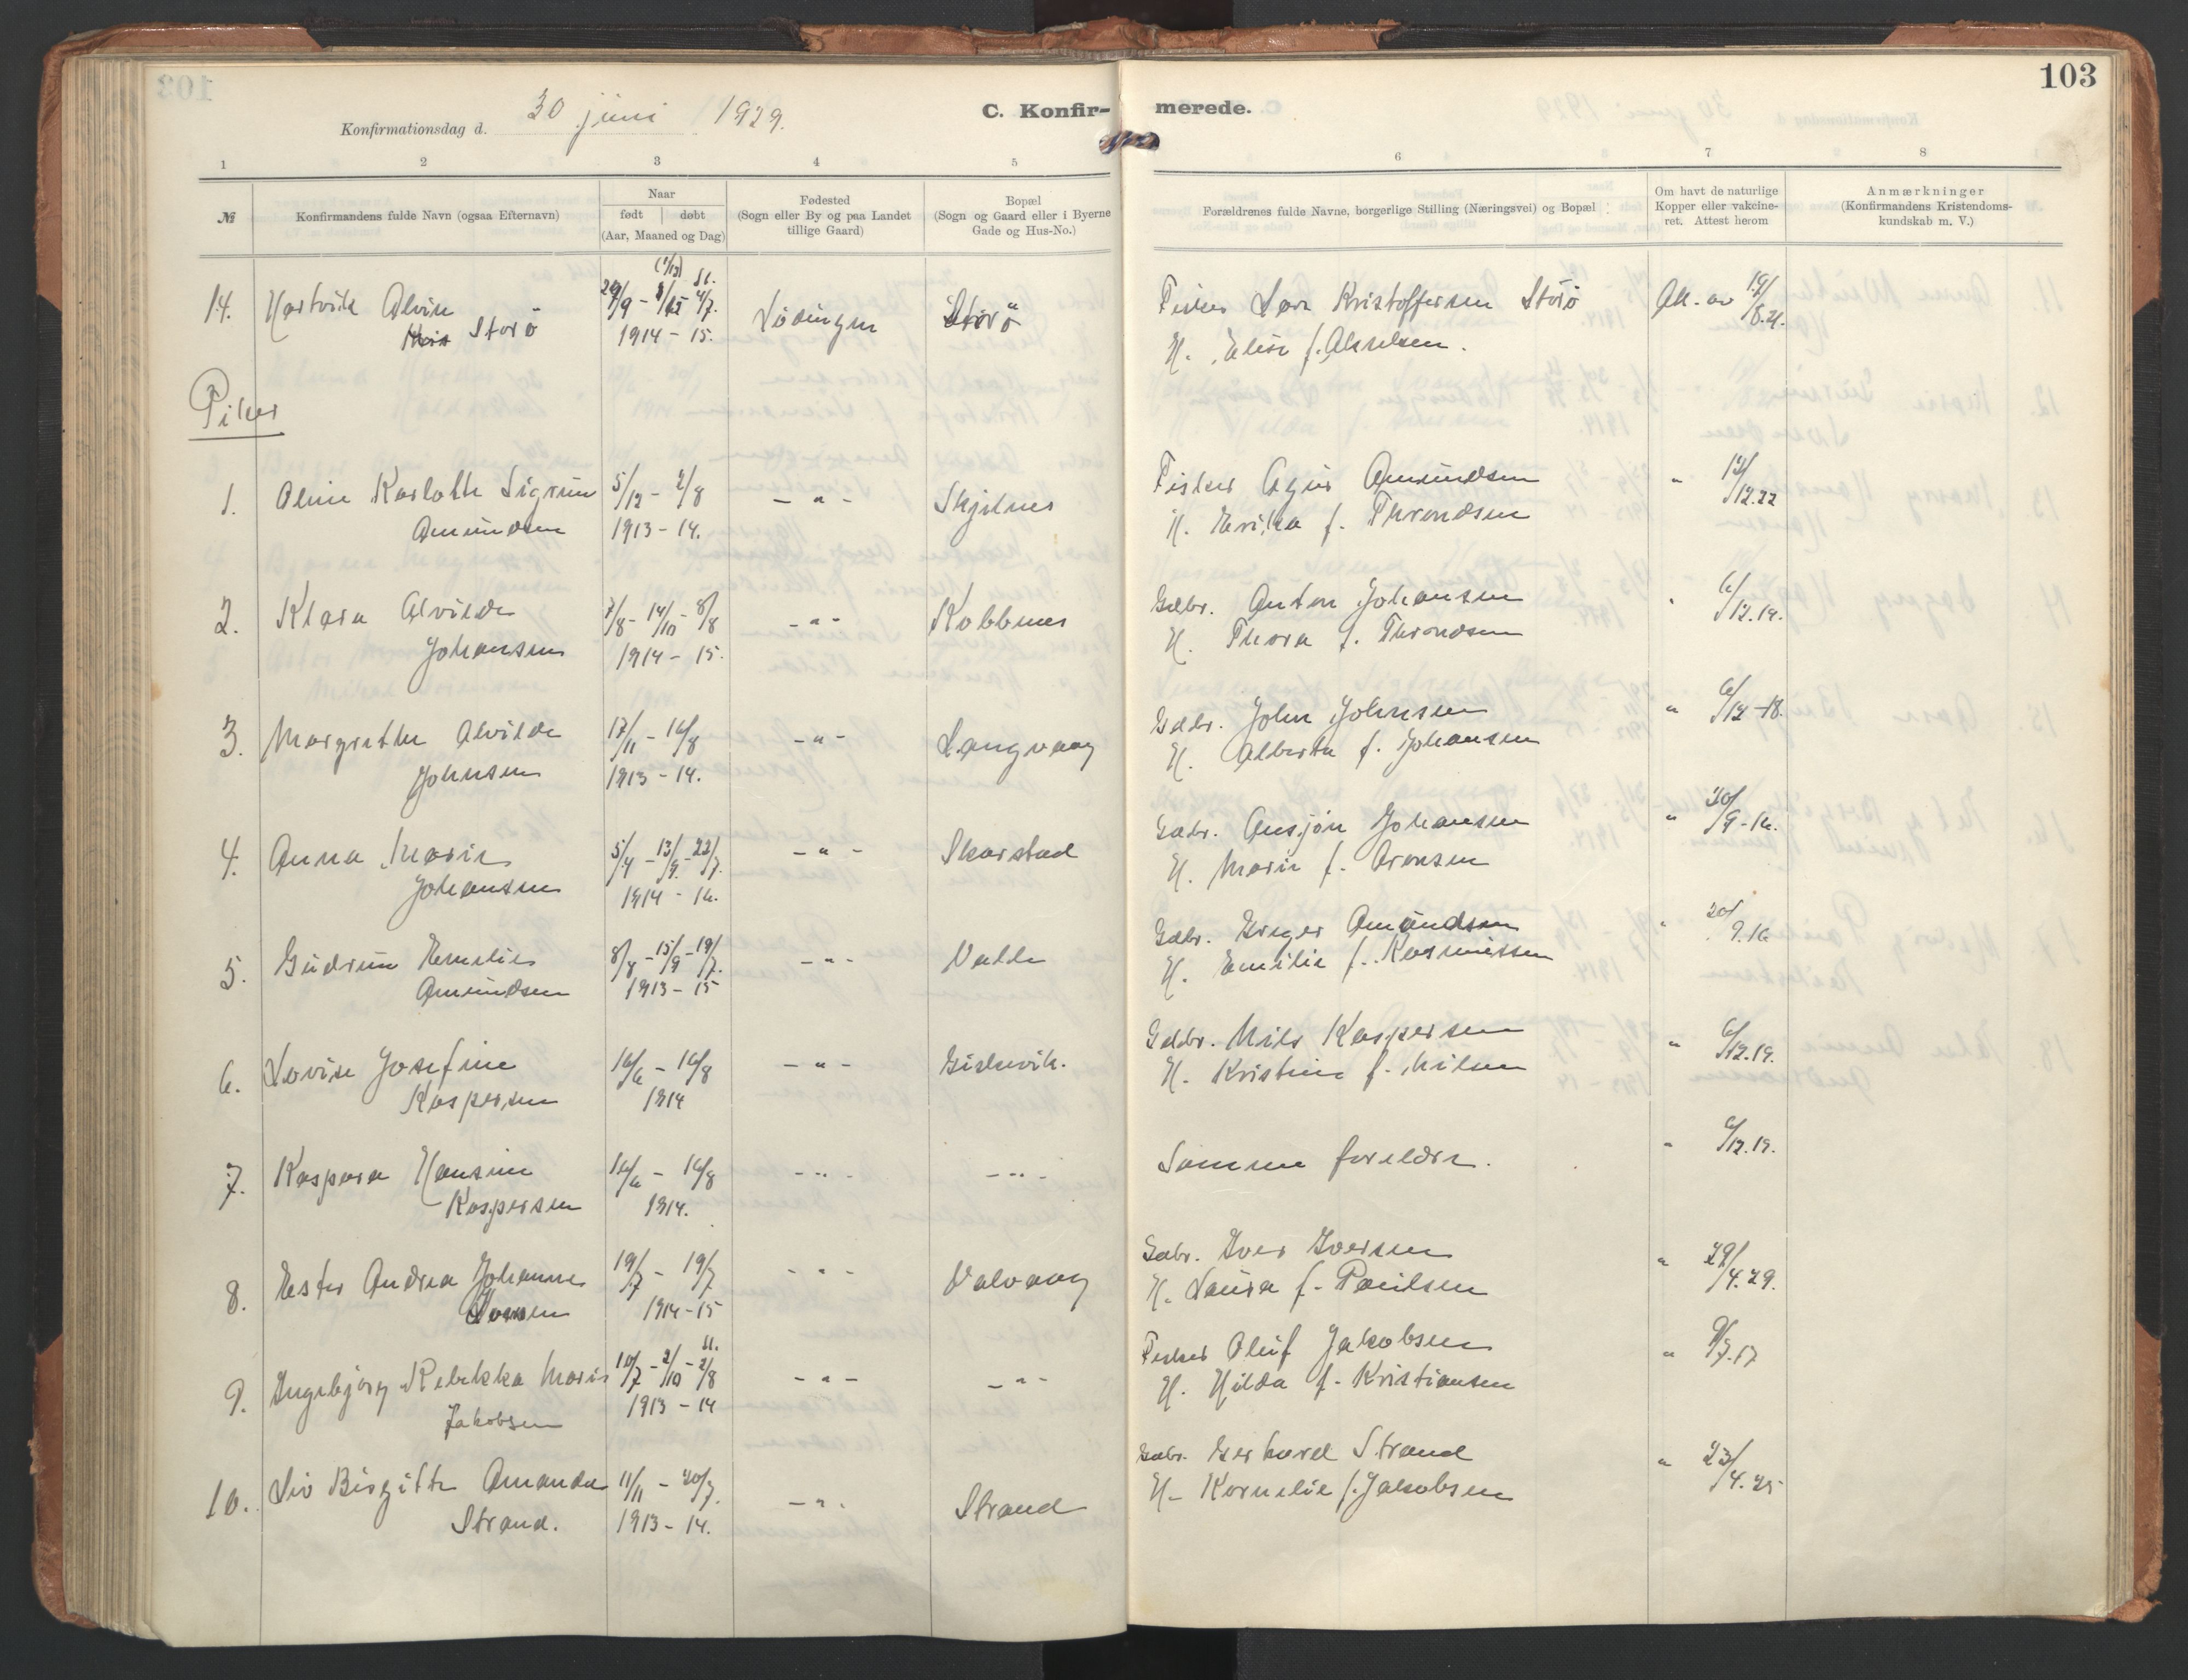 103
Konfirmationsdag d. 30 juni 1929.
C. Konfir- merede.
1 2 3 4 5 6 7 8
№
Konfirmandens fulde Navn (ogsaa Efternavn)
Naar
født | døbt
(Aar, Maaned og Dag)
Fødested
(Sogn eller By og paa Landet
tillige Gaard)
Bopæl
(Sogn og Gaard eller i Byerne
Gade og Hus-No.)
Forældrenes fulde Navne, borgerlige Stilling (Næringsvei) og Bopæl
Om havt de naturlige
Kopper eller vakcine-
ret. Attest herom
Anmærkninger
(Konfirmandens Kristendoms-
kundskab m. V.)
14. Hartvik Alvin Lödingen Storö Fisker Kristoffersen Storö
Storö 1914 - 15. H. Elise f. Akselsen.
Piker
1. Oline Karlotte Sigrun 5/12 - 2/8 - " - Skjelnes Fisker Amundsen " 12.22
Amundsen 1913 - 14. H. Erika f. Throndsen
2. Klara Alvilde 7/8 - 14/10 - 8/8 - " - Kobbenes Gdbr. Anton Johansen " 6/12.19.
Johansen 1914 - 15. H. Thora f. Throndsen
3. Margrethe Alvilde 17/11 - 16/8 - " - Langvaag Gdbr. John Johnsen " 6/12-18.
Johnsen 1913 - 14. H. Alberta f. Johansen
4. Anna Marie 5/4 - 13/9 - 22/7. - " - Skarstad Gdbr. Ansjön Johansen " 20/9-16.
Johansen 1914 - 16. H. Marie f. Aronsen
5. Gudrun Emelie 8/8 - 15/9 - 19/7. - " - Valle Gdbr. Amundsen " 20/9.16
Amundsen 1913 - 15 H. Emilie f. Rasmussen
6. Lovise Josefine 16/6 - 16/8 - " - Giskevik. Gdbr. Nils Kaspersen " 6/12.19.
Kaspersen 1914 H. Kristine f. Nilsen
7. Kaspara Hansine 16/6 - 16/8 - " - - " - Samme foreldre. " 6/12.19.
Kaspersen 1914.
8. Ester Andrea Johanne 19/7 - 19/7 - " - Valvaag Gdbr. Iver Iversen " 29/4.29.
Iversen 1914 - 15 H. Laura f. Paulsen
9. Ingebjørg Rebekka Marie 10/7 - 2/10 - 2/8 - " - - " - Fisker Oluf Jakobsen " 9/7.17
Jakobsen 1913 - 14 H. Hilda f. Kristiansen
10. Liv Birgitte Amanda 11/11 - 20/7. - " - Strand Gdbr. Gerhard Strand " 23/4.25
Strand. 1913 - 14. H. Kornelie f. Jakobsen